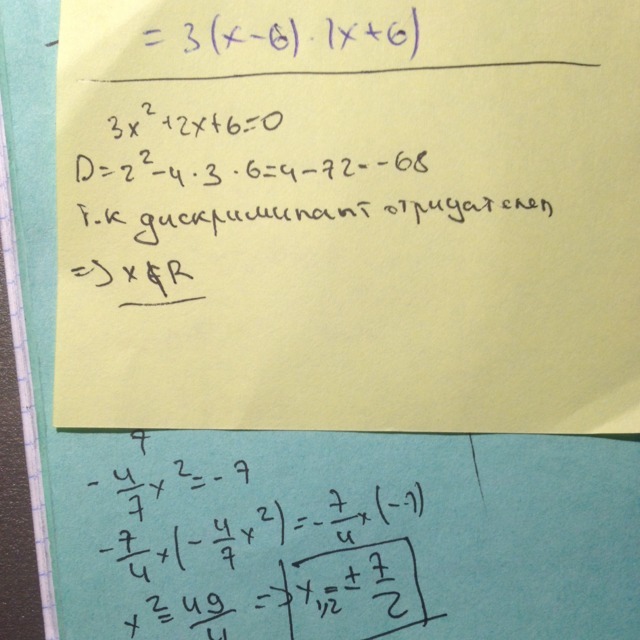 = 3(x-6)·(x+6)
3x²+2x+6=0
D=2²-4·3·6=4-72=-68
т.к дискриминант отрицателен
=> x∉R
7
-4/7x²=-7
-7/4×(-4/7x²)=-7/4×(-7)
x²=49/4 => x₁,₂=±7/2